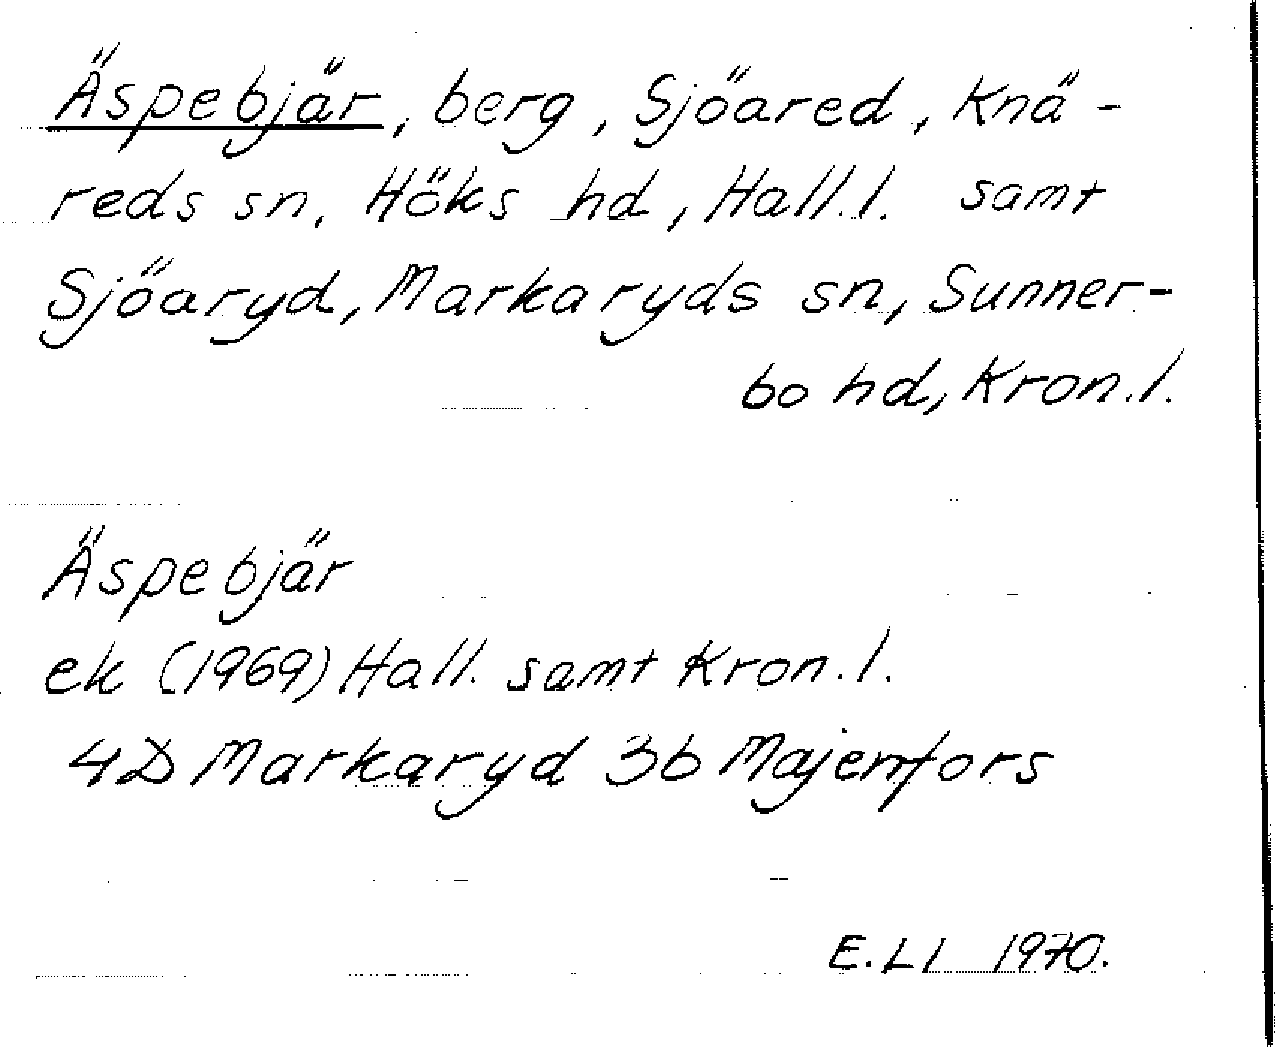 Äspebjär, berg, Sjöared, Knä-
reds sn, Höks hd, Hall.l. samt
Sjöaryd, Markaryds sn, Sunner-
bo hd, Kron.l.
Äspebjär
ek (1969) Hall. samt Kron.l.
4D Markaryd 3b Majenfors
E.LI 1970.